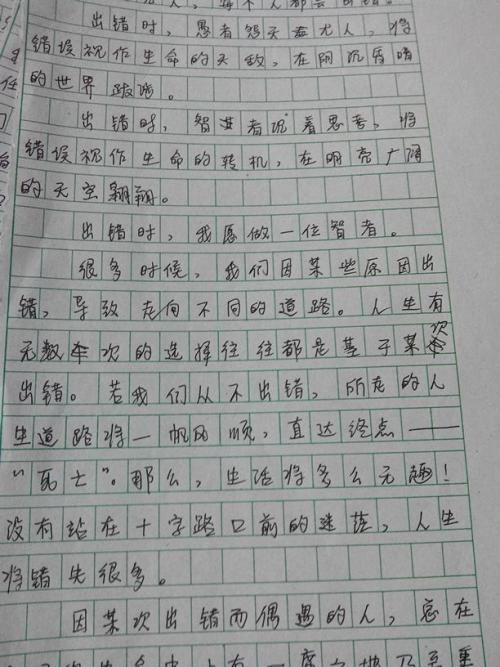 人，每个人都会出错。
出错时，愚者怨天尤人，将
错误视作生命的天敌，在阴沉昏暗
的世界跋涉。
出错时，智者沉着思考，将
错误视作生命的转机，在明亮广阔
的天空翱翔。
出错时，我愿做一位智者。
很多时候，我们因某些原因出
错，导致走向不同的道路。人生有
无数次的选择往往都是基于某次
出错。若我们从不出错，所走的人
生道路将一帆风顺，直达终点——
“瓦士”。那么，生活将多么无趣！
没有站在十字路口前的迷茫，人生
将错失很多。
因某次出错而偶遇的人，总在